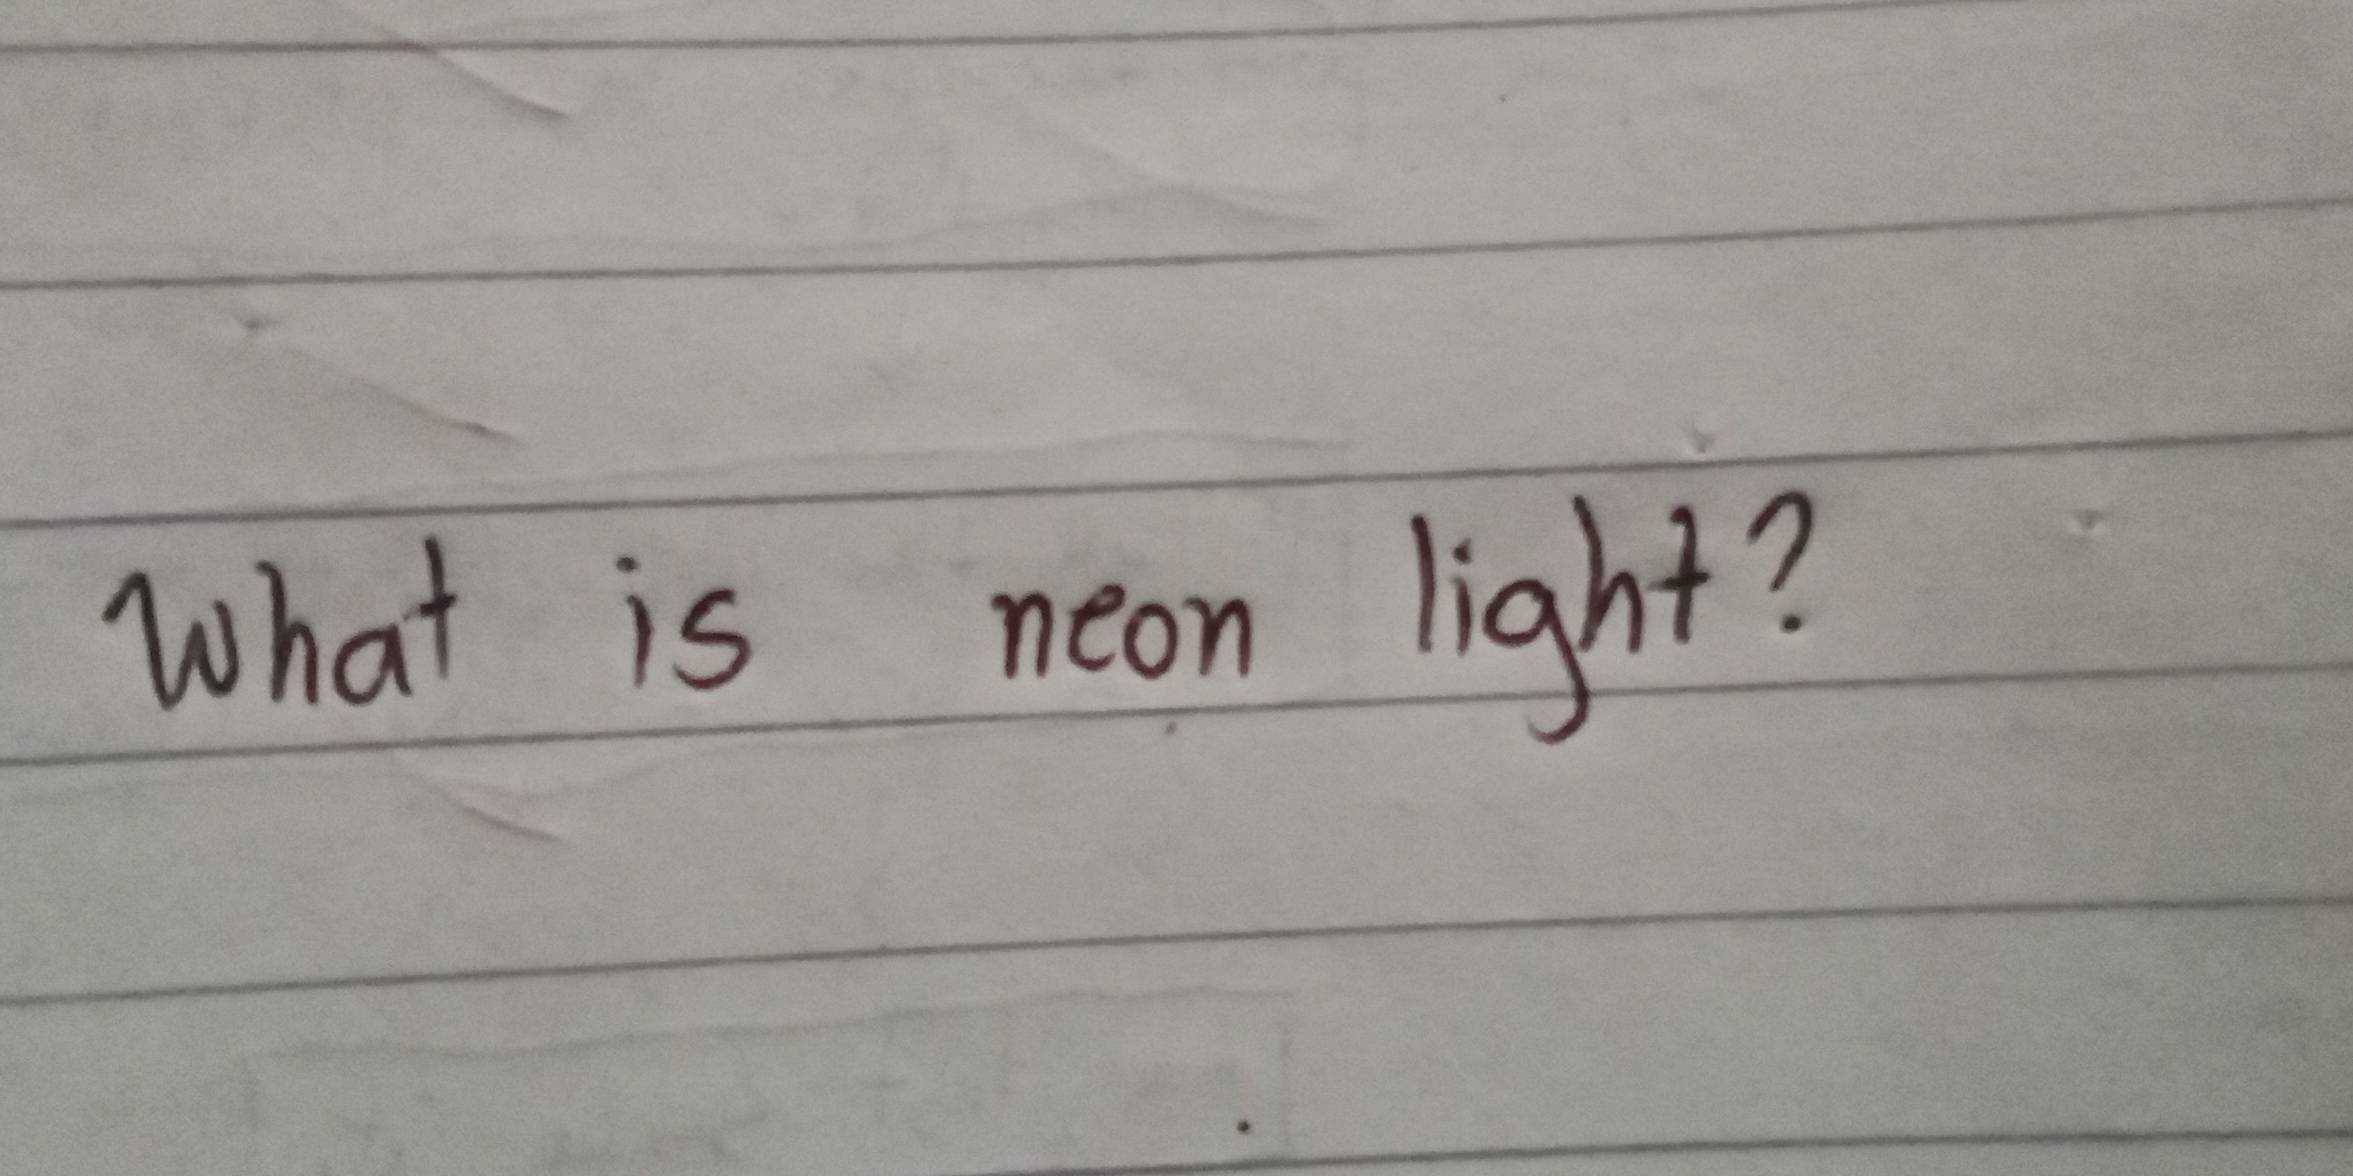 What is neon light?